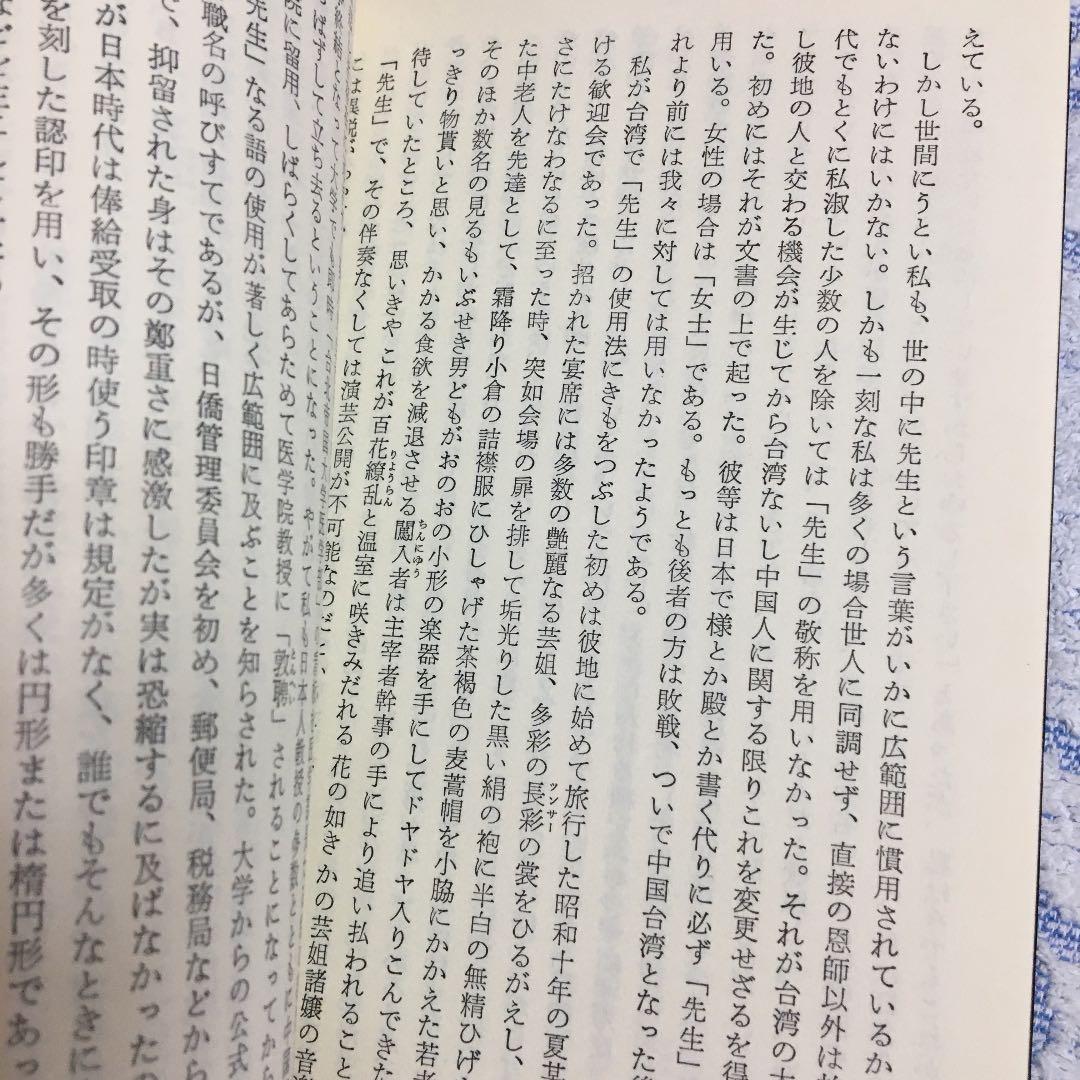 えている。
しかし世間にうとい私も、世の中に先生という言葉がいかに広範囲に慣用されているか
ないわけにはいかない。しかも一刻な私は多くの場合世人に同調せず、直接の恩師以外は
代でもとくに私淑した少数の人を除いては「先生」の敬称を用いなかった。それが台湾の
し彼地の人と交わる機会が生じてから台湾ないし中国人に関する限りこれを変更せざるを得
た。初めにはそれが文書の上で起った。彼等は日本で様とか殿とか書く代りに必ず「先生」
用いる。女性の場合は「女士」である。もっとも後者の方は敗戦、ついで中国台湾となった
れより前には我々に対しては用いなかったようである。
私が台湾で「先生」の使用法にきもをつぶした初めは彼地に始めて旅行した昭和十年の夏某
ける歓迎会であった。招かれた宴席には多数の艶麗なる芸妲、多彩の長彩ツンサーの裳をひるがえし、
さにたけなわなるに至った時、突如会場の扉を排して垢光りした黒い絹の袍に半白の無精ひげ
た中老人を先達として、霜降り小倉の詰襟服にひしゃげた茶褐色の麦藁帽を小脇にかかえた若者
そのほか数名の見るもいぶせき男どもがおのおの小形の楽器を手にしてドヤドヤ入りこんできた
っきり物貰いと思い、かかる食欲を減退させる闖入ちんにゅう者は主宰者幹事の手により追い払われること
待していたところ、思いきやこれが百花繚乱りょうらんと温室に咲きみだれる花の如きかの芸妲諸嬢の音
「先生」で、その伴奏なくしては演芸公開が不可能なのだ
には異説が
っぱずして立ち去るということになった。やがて私も日本人教授の
院に留用、しばらくしてあらためて医学院教授に「敦聘」されることになってから
先生」なる語の使用が著しく広範囲に及ぶことを知らされた。大学からの公式
職名の呼びすてであるが、日僑管理委員会を初め、郵便局、税務局などから
で、抑留された身はその鄭重さに感激したが実は恐縮するに及ばなかったの
が日本時代は俸給受取の時使う印章は規定がなく、誰でもそんなときに
を刻した認印を用い、その形も勝手だが多くは円形または楕円形であっ